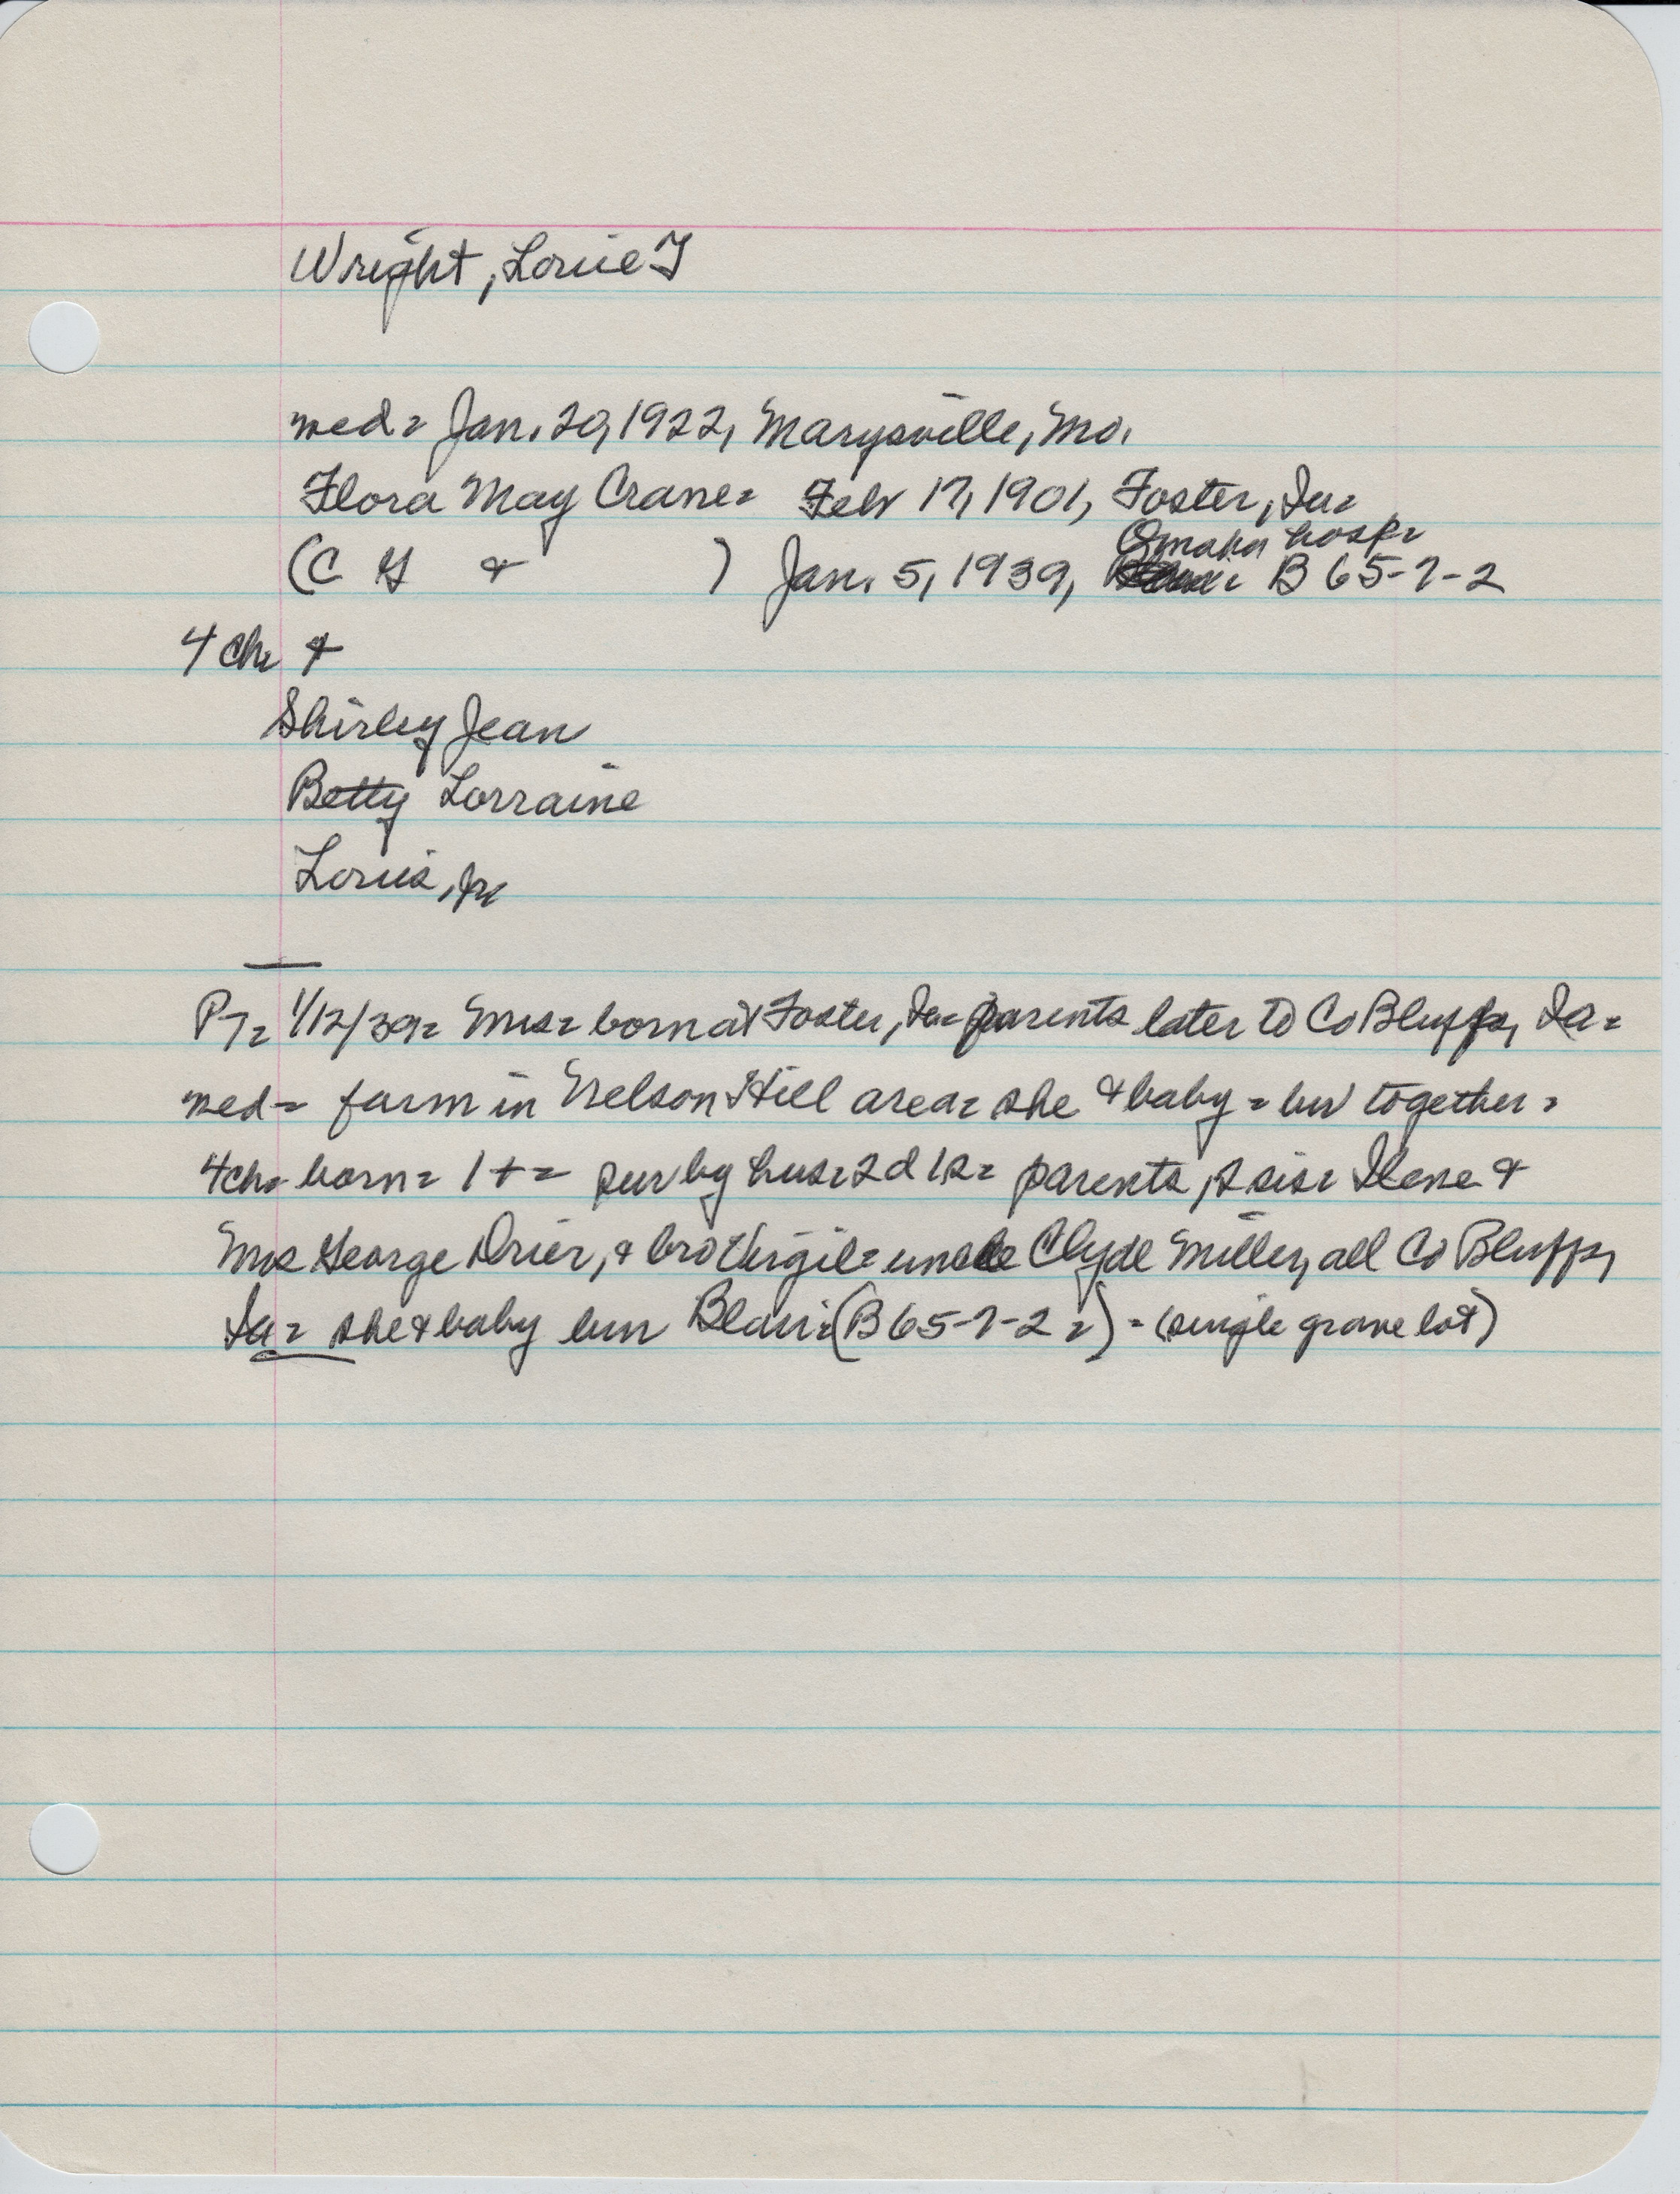 Wright, Louie F
med= Jan. 20, 1922, Marysville, Mo.
Flora May Crane= Feb 17, 1901, Foster, Ia=
Omaha hosp=
(C G & ) Jan. 5, 1939, B 65-7-2
4 ch= +
Shirley Jean
Betty Lorraine
Louis, Jr
PT= 1/12/39= Mrs= born at Foster, Ia= parents later to Co Bluffs, Ia=
med= farm in Nelson Hill area= she & baby= bur together=
4ch= born= 1+= sur by hus= 2d 1s= parents, 2 sis= Ilene &
Mrs George Drier, & bro Virgil= uncle Clyde Miller, all Co Bluffs,
Ia= she & baby bur Blair=(B 65-7-2=)=(single grave lot)